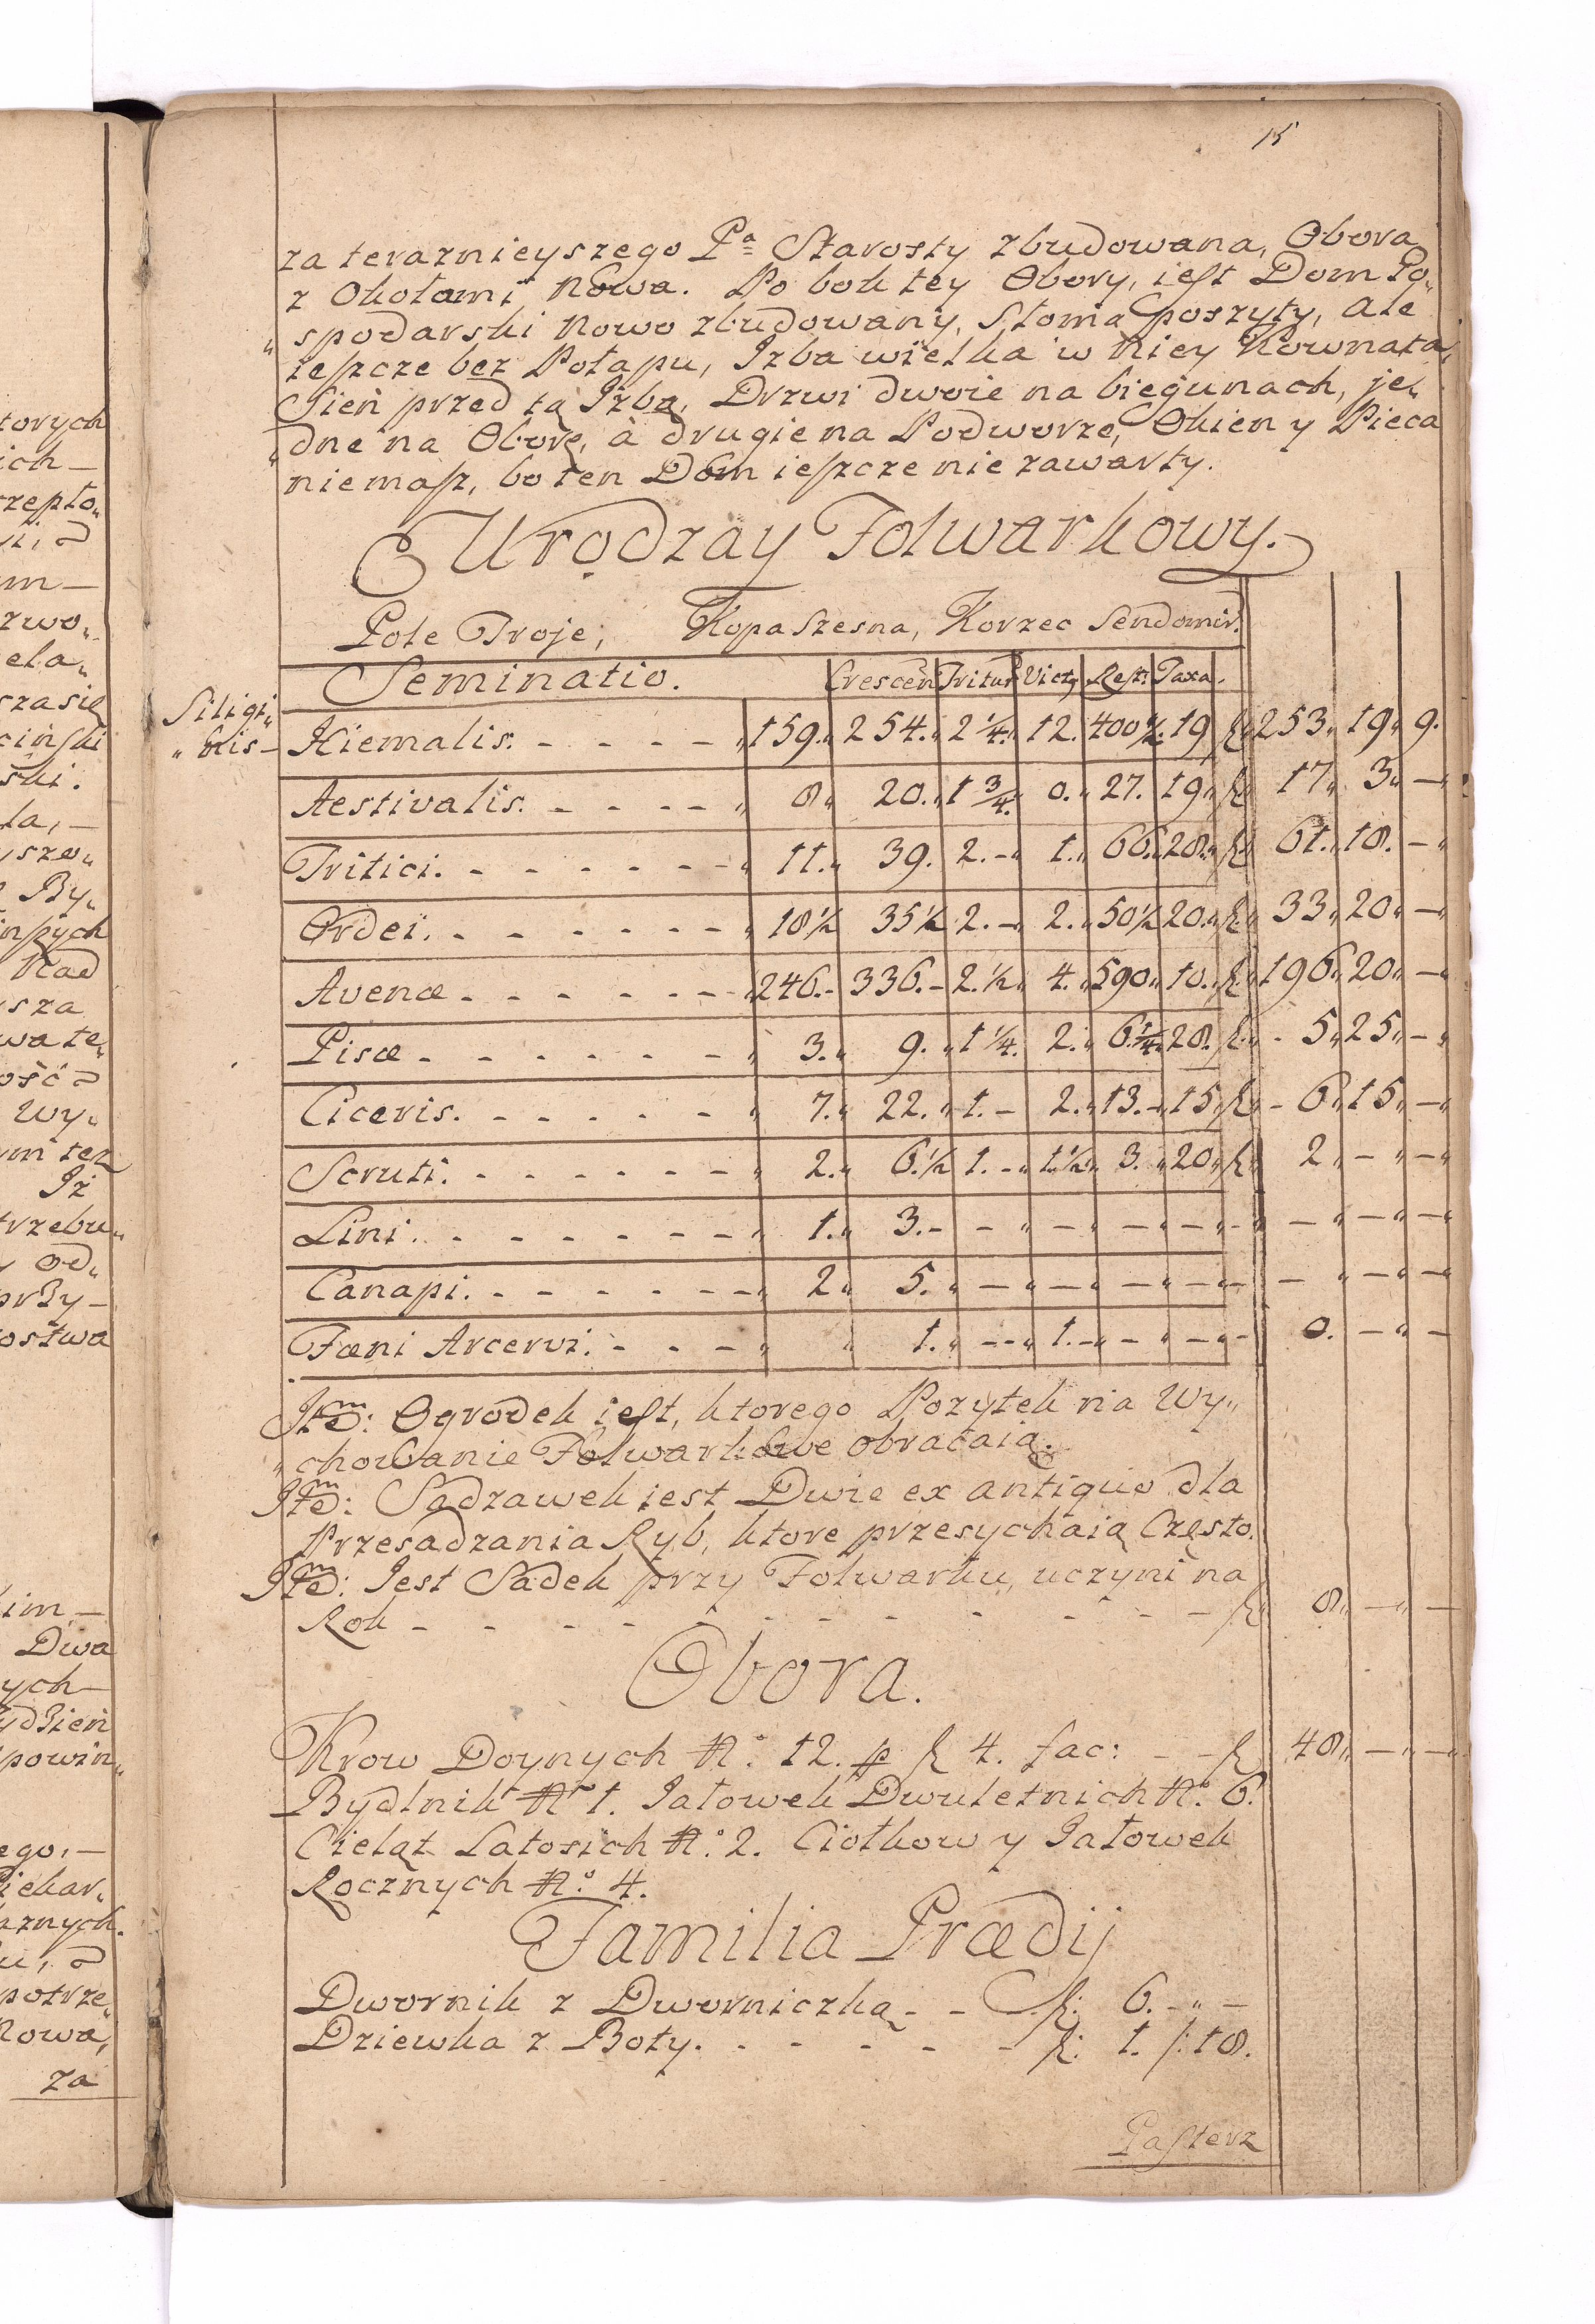 15
za teraznieyszego Pa Starosty zbudowana, Obora
z Okołami Nowa. Po boku tey Obory, iest Dom Go„
„spodarski Nowo zbudowany, Słomą poszyty, ale
ieszcze bez Połapu, Izba wielka w Niey Kownata,
Sień przed tą Izbą, Drzwi dwoie na biegunach, je„
„dne na Oborę, à drugie na Podworze, Okien y Pieca
niemasz, bo ten Dom ieszcze nie zawarty.
Urodzay Folwarkowy.
Pole Troje, Kopa Szesna, Korzec Sendomir.
Seminatio. Crescen Tritur Vict, Rest: Taxa.
Siligi„
„nis — Hiemalis. - - - - „ 159. „ 254. „ 2 1/4. „ 12. 400 1/2. 19 f 253 „ 19 „ 9.
Aestivalis. - - - - „ 8 „ 20. „ 1 3/4. „ 0. „ 27. 19 „ f 17 „ 3 „ —
Tritici. - - - - - - „ 11. „ 39. 2. - „ 1. „ 66. „ 28. „ f 61. „ 18. — „
Ordei. - - - - - - „ 18 1/2 35 1/2 2. - „ 2. „ 50 1/2 20. „ f. 33 „ 20 „ — „
Avenæ - - - - - - „ 246. - 336. - 2. 1/2 „ 4. „ 590 „ 10. „ f. 196 „ 20 „ —
Pisæ - - - - - - „ 3. „ 9. „ 1 1/4. 2. „ 6. 1/4. 28. f. - 5 „ 25 „ — „
Ciceris. - - - - - „ 7. „ 22. „ 1. - 2. „ 13. - 15 „ f. - 6 „ 15 „ — „
Scruti. - - - - - - „ 2. „ 6. 1/2 1. - „ 1. 1/2 „ 3. „ 20 „ f „ 2 „ — „ — „
Lini. - - - - - - - „ 1. „ 3. - - „ — „ — „ — „ - „ — „ — „ — „
Canapi. - - - - - - „ 2 „ 5. „ — „ — „ — „ — — „ — „ — „
Fœni Arcervi. - - - „ „ 1. „ -- „ 1. - „ - „ - „ - 0. — „ —
Item: Ogrodek iest, ktorego Pozytek na Wy„
„chowanie Folwarkowe obracaią.
Item: Sadzawek iest Dwie ex antiquo dla
Przesadzania Ryb, ktore przesychaią Często.
Item: Jest Sadek przy Folwarku, uczyni na
Rok - - - - - - - - - - - - f „ 8 „ — „ —
Obora.
Krow Doynych No. 12. p f 4. fac: - - f 48 „ — „ — „
Bydlnik No 1. Jałowek Dwuletnich No. 6.
Cieląt Latosich No. 2. Ciołkow y Jałowek
Rocznych No. 4.
Familia Prædij
Dwornik z Dworniczką - - f: 6. - „ —
Dziewka z Boty. - - - - - - f: 1. /: 18.
Pasterz
torych
ich —
m —
zwo„
ela„
szasię
ciński
ski.
la, —
yszo„
By„
Nad
ysza
wate„
Wy„
ym też
Iż
trzebu„
od„
ostwa
im —
Dwa
ych —
ydzień
powin„
ego, —
iekar„
aznych.
potrze„
Nowa,
za